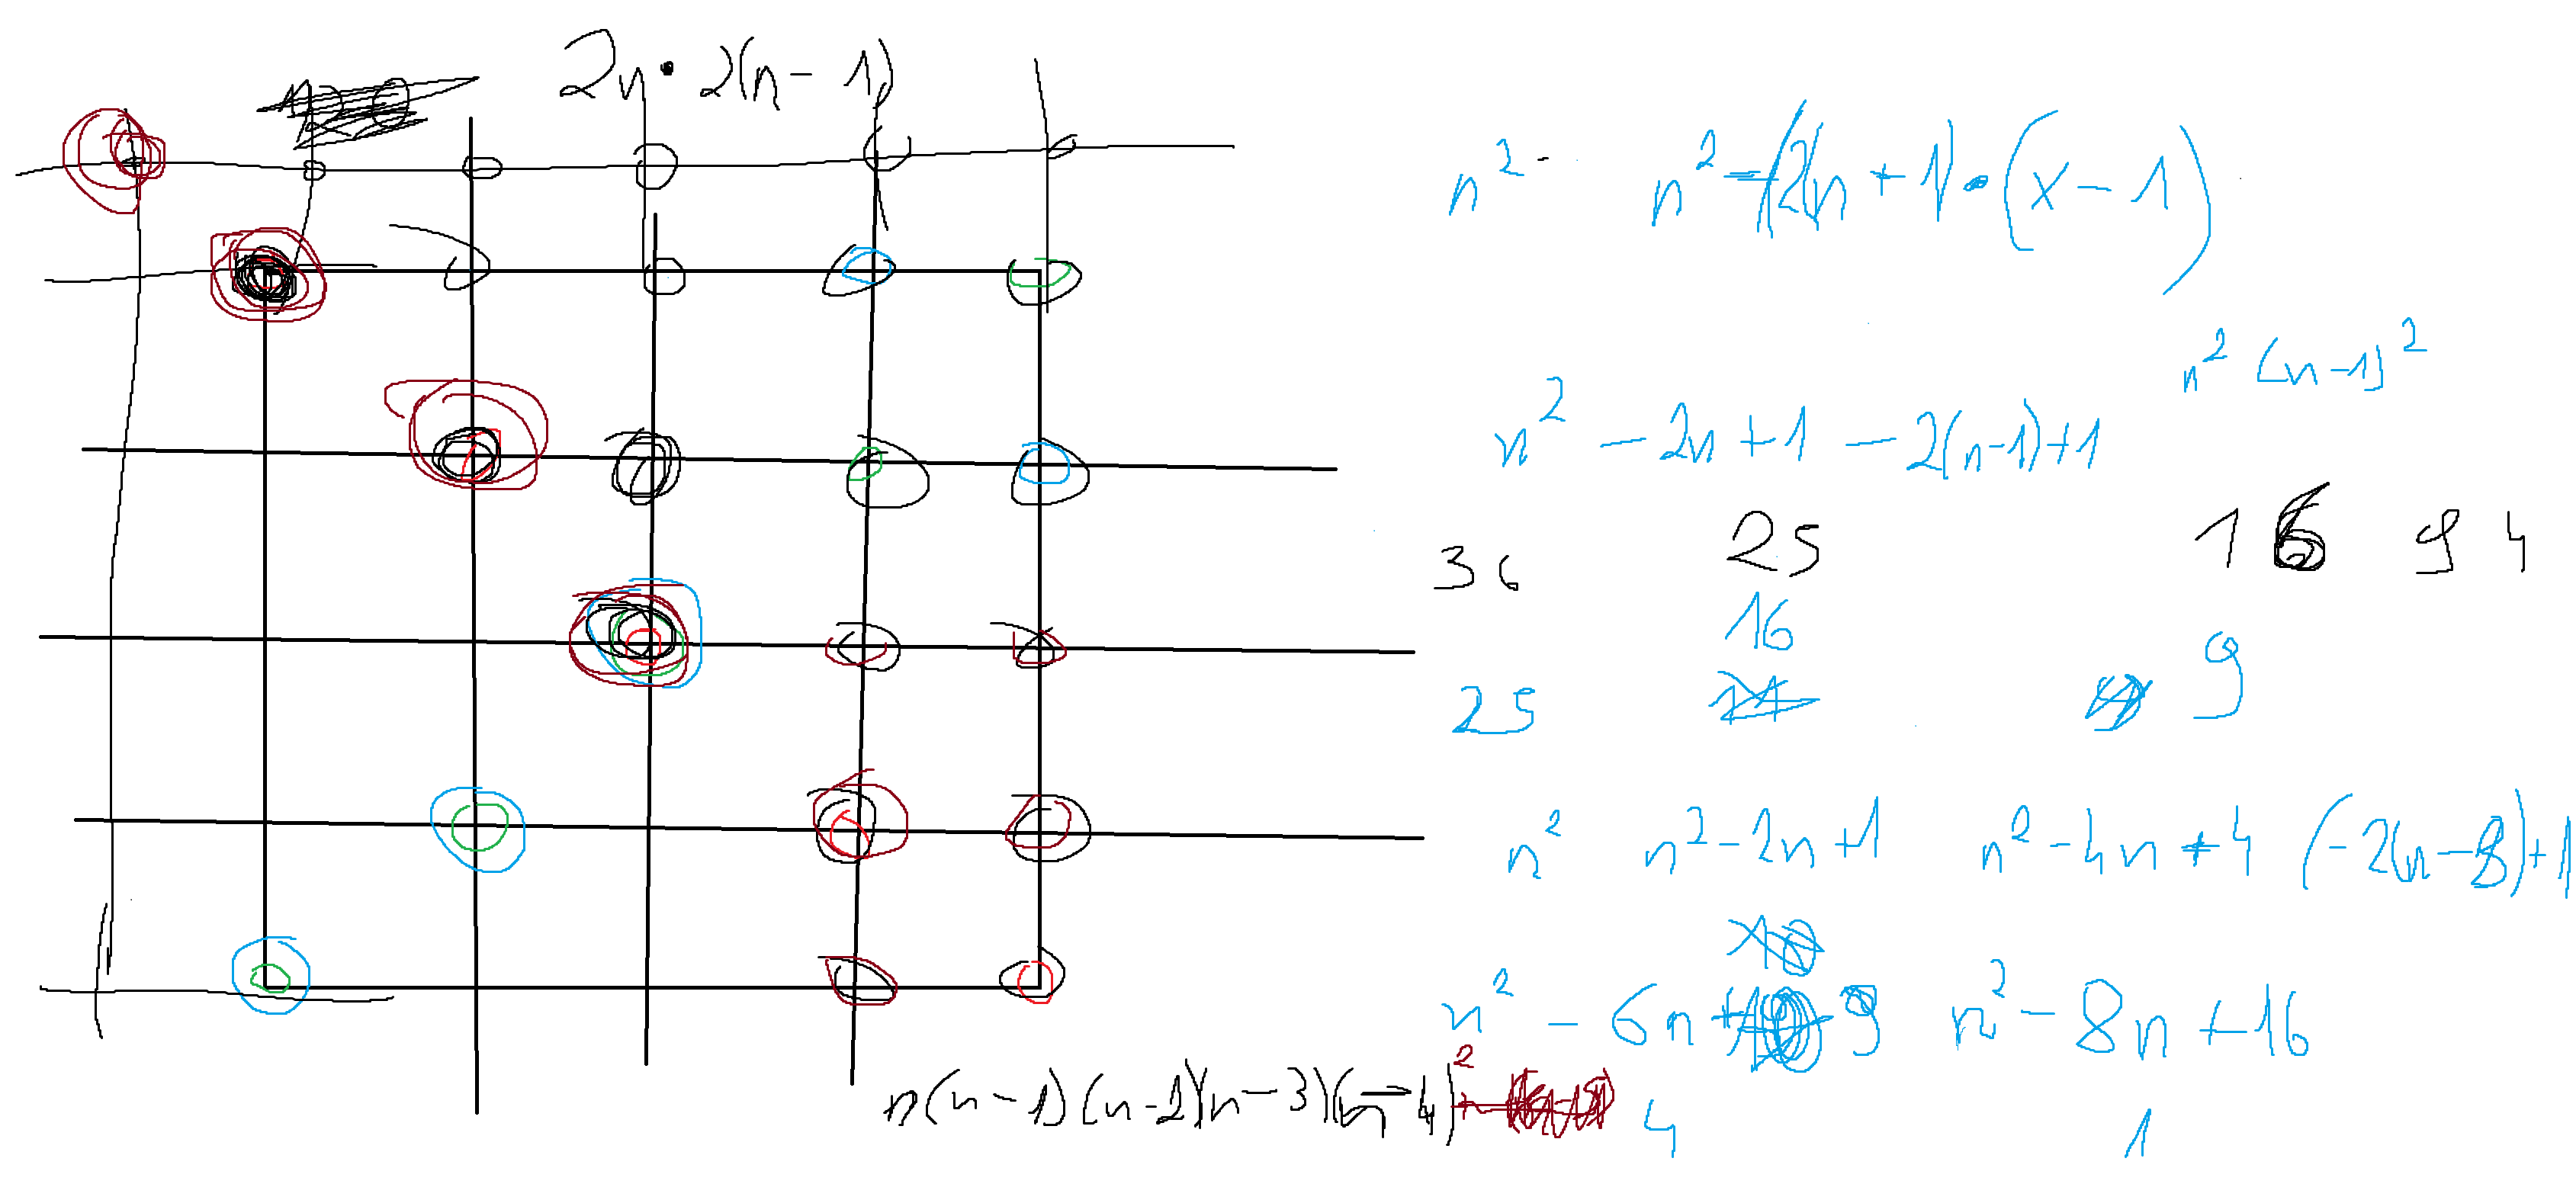 2n · 2(n - 1)
n² - n² - (2n + 1) · (x - 1)
n² (n - 1)²
n² - 2n + 1 - 2(n-1) + 1
36 25 16 9 4
16 9
25
n² n² - 2n + 1 n² - 4n + 4 (-2(n - 8) + 1
n² - 6n + 9 n² - 8n + 16
n(n - 1)(n - 2)(n - 3)(n - 4)²
4 1